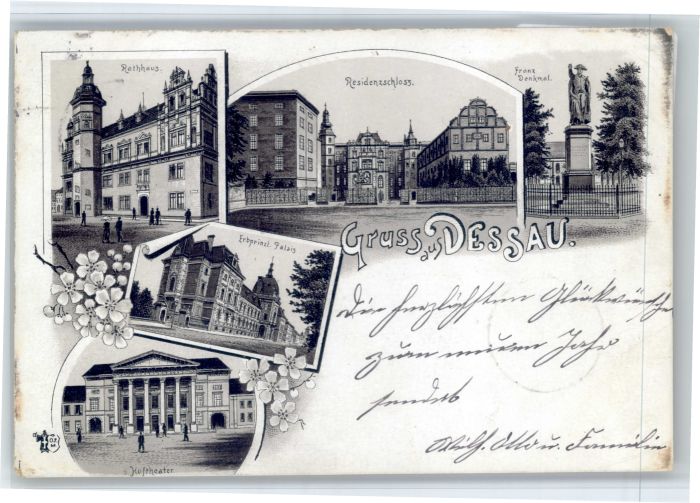 Rathhaus.
Residenzschloss.
Franz
Denkmal.
Erbprinzl. Palais
Gruss aus DESSAU.
Die herzlichsten Glückwünsche
zum neuen Jahr
sendet
Wilh. Otto u. Familie
Hoftheater